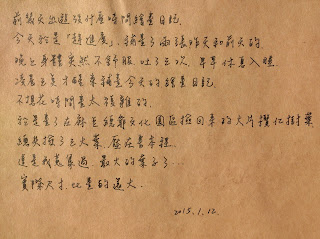 前幾天出遊沒什麼時間繪畫日記
今天就是「趕進度」, 補畫了兩張昨天和前天的.
晚上身體突然不舒服. 吐了三次. 早早休息入睡.
凌晨三點才醒來補畫今天的繪畫日記.
不想花時間畫太複雜的.
於是畫了在麻豆總爺文化園區撿回來的大片欖仁樹葉
總共撿了三大葉. 壓在書本裡.
這是我蒐集過 最大的葉子了...
實際尺寸. 比畫的還大.
2015.1.12.